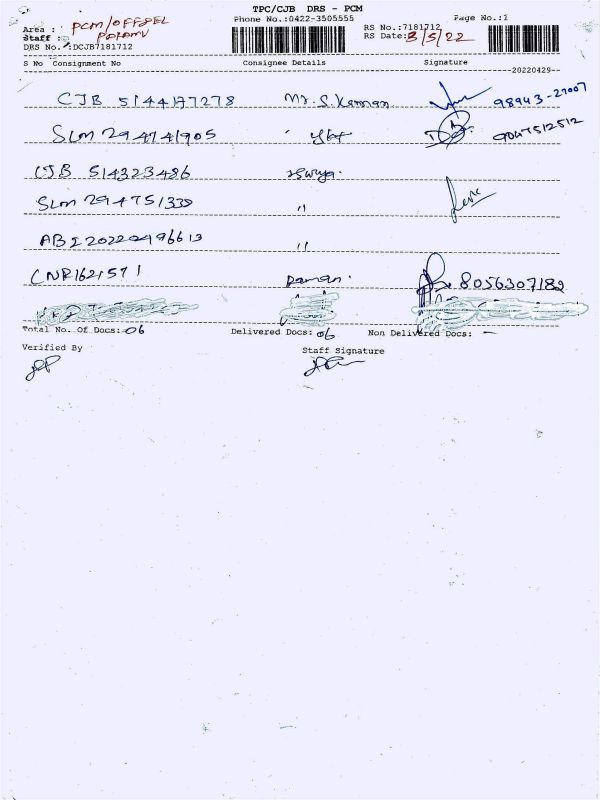 TPC/CJB DRS - PCM
Phone No.:0422-3505555 Page No.:1
Area : PCM/OFFSEL
Staff :
DRS No. :DCJB7181712
RS No.:7181712
RS Date: 3/5/22
S No Consignment No Consignee Details Signature
20220429
CJB 514477278 Mr. S. Kannan 98943-27007
SLM 294741905 9047512512
CJB 514323486
SLM 294751339 "
ABI 20220496613 "
CNR1621571 Raman. 8056307182
Total No. Of Docs: 06 Delivered Docs: 06 Non Delivered Docs: -
Verified By Staff Signature